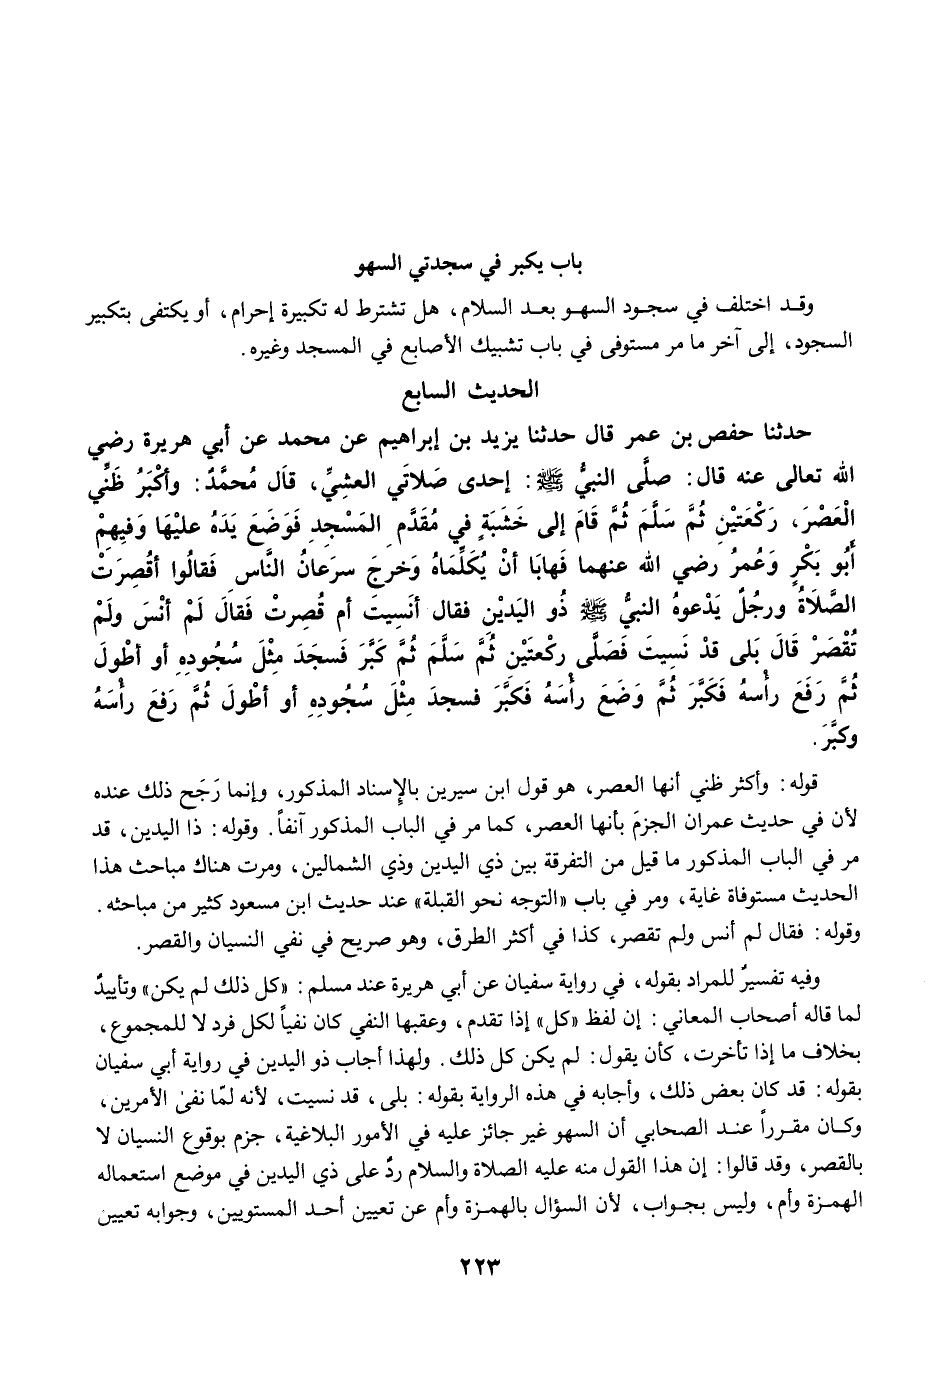 باب يكبر في سجدتي السهو
وقد اختلف في سجود السهو بعد السلام، هل تشترط له تكبيرة إحرام، أو يكتفى بتكبير
السجود، إلى آخر ما مر مستوفى في باب تشبيك الأصابع في المسجد وغيره.
الحديث السابع
حدثنا حفص بن عمر قال حدثنا يزيد بن إبراهيم عن محمد عن أبي هريرة رضي
الله تعالى عنه قال: صلَّى النبيُّ ﷺ: إحدى صَلاتَي العشِيِّ، قال مُحمَّدٌ: وأكْبَرُ ظَنِّي
الْعَصْرَ، رَكْعَتَيْنِ ثُمَّ سَلَّمَ ثُمَّ قَامَ إلى خَشَبَةٍ في مُقَدَّمِ المَسْجدِ فَوَضَعَ يَدَهُ عليْهَا وَفيهِمْ
أَبُو بَكْرٍ وَعُمرُ رضي الله عنهما فَهابَا أنْ يُكَلِّمَاهُ وَخرجَ سرَعانُ النَّاسِ فَقالُوا أقُصِرَتْ
الصَّلاَةُ ورجُلٌ يَدْعوهُ النبيُّ ﷺ ذُو اليَديْنِ فقال أنَسِيتَ أم قُصِرتْ فَقالَ لَمْ أنْسَ ولَمْ
تُقْصَرْ قَالَ بَلى قدْ نَسِيتَ فَصَلَّى رِكْعتَيْنِ ثُمَّ سَلَّمَ ثُمَّ كَبَّرَ فَسجَدَ مِثْلَ سُجُودهِ أو أطْولَ
ثُمَّ رَفَعَ رأْسهُ فَكَبَّرَ ثُمَّ وَضَعَ رأْسَهُ فَكبَّرَ فسجدَ مِثْلَ سُجُودِهِ أو أطْولَ ثُمَّ رَفعَ رأْسَهُ
وكبَّرَ.
قوله: وأكثر ظني أنها العصر، هو قول ابن سيرين بالإسناد المذكور، وإنما رَجَح ذلك عنده
لأن في حديث عمران الجزمَ بأنها العصر، كما مر في الباب المذكور آنفاً. وقوله: ذا اليدين، قد
مر في الباب المذكور ما قيل من التفرقة بين ذي اليدين وذي الشمالين، ومرت هناك مباحث هذا
الحديث مستوفاة غاية، ومر في باب «التوجه نحو القبلة» عند حديث ابن مسعود كثير من مباحثه.
وقوله: فقال لم أنس ولم تقصر، كذا في أكثر الطرق، وهو صريح في نفي النسيان والقصر.
وفيه تفسيرٌ للمراد بقوله، في رواية سفيان عن أبي هريرة عند مسلم: «كل ذلك لم يكن» وتأييدٌ
لما قاله أصحاب المعاني: إن لفظ «كل» إذا تقدم، وعقبها النفي كان نفياً لكل فرد لا للمجموع،
بخلاف ما إذا تأخرت، كأن يقول: لم يكن كل ذلك. ولهذا أجاب ذو اليدين في رواية أبي سفيان
بقوله: قد كان بعض ذلك، وأجابه في هذه الرواية بقوله: بلى، قد نسيت، لأنه لمّا نفىٰ الأمرين،
وكان مقرراً عند الصحابي أن السهو غير جائز عليه في الأمور البلاغية، جزم بوقوع النسيان لا
بالقصر، وقد قالوا: إن هذا القول منه عليه الصلاة والسلام ردٌ على ذي اليدين في موضع استعماله
الهمزة وأم، وليس بجواب، لأن السؤال بالهمزة وأم عن تعيين أحد المستويين، وجوابه تعيين
٢٢٣